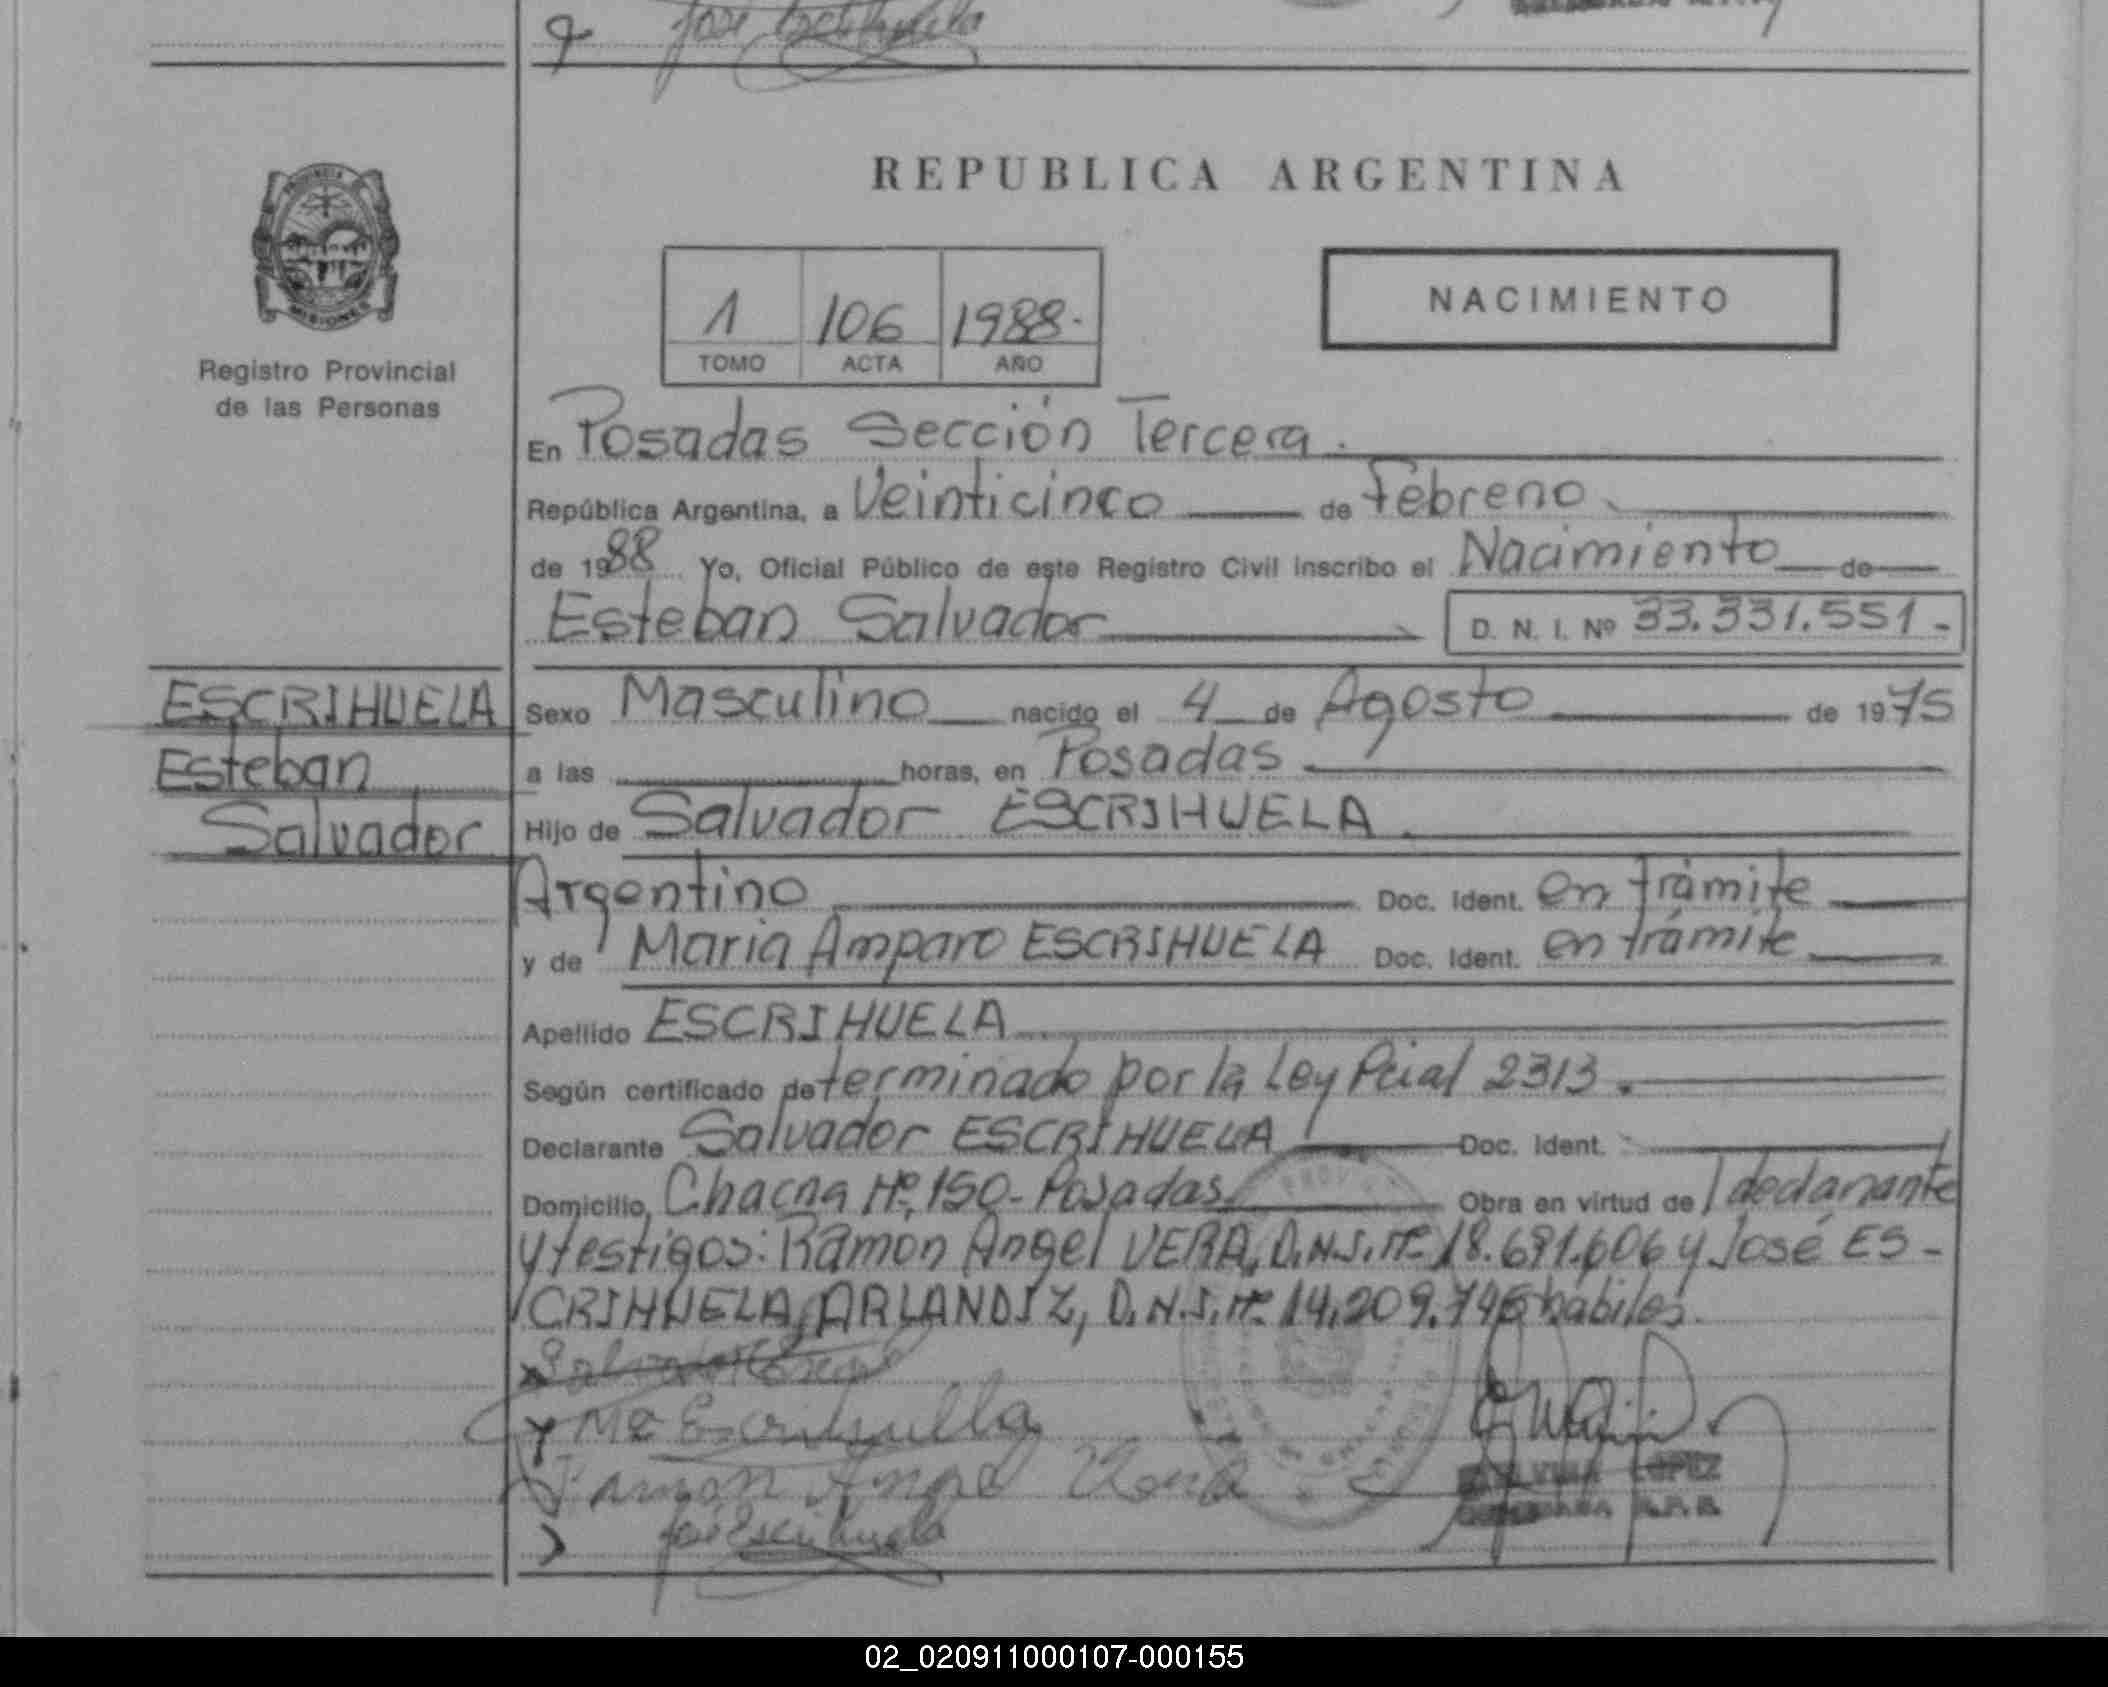 José Escrihuela
REPUBLICA ARGENTINA
PROVINCIA
MISIONES
Registro Provincial
de las Personas
1 106 1988.
TOMO ACTA AÑO
NACIMIENTO
En Posadas Sección Tercera.
República Argentina, a Veinticinco de Febrero
de 1988 Yo, Oficial Público de este Registro Civil inscribo el Nacimiento de
Esteban Salvador D. N. I. Nº 33.331.551-
ESCRIHUELA
Esteban
Salvador
Sexo Masculino nacido el 4 de Agosto de 1975
a las horas, en Posadas
Hijo de Salvador ESCRIHUELA
Argentino Doc. Ident. en trámite
y de Maria Amparo ESCRIHUELA Doc. Ident. en trámite
Apellido ESCRIHUELA
Según certificado determinado por la Ley Pcial 2313.
Declarante Salvador ESCRIHUELA Doc. Ident.
Domicilio Chacra Nº 150- Posadas Obra en virtud de l declarante
y testigos: Ramon Angel VERA, D.N.I. Nº 18.691.606 y José ES-
CRIHUELA, ARLANDIZ, D.N.I. Nº 14.209.746 habiles.
Mª Escrihuella
Ramon Angel Vera
LOPEZ
José Escrihuela
02_020911000107-000155